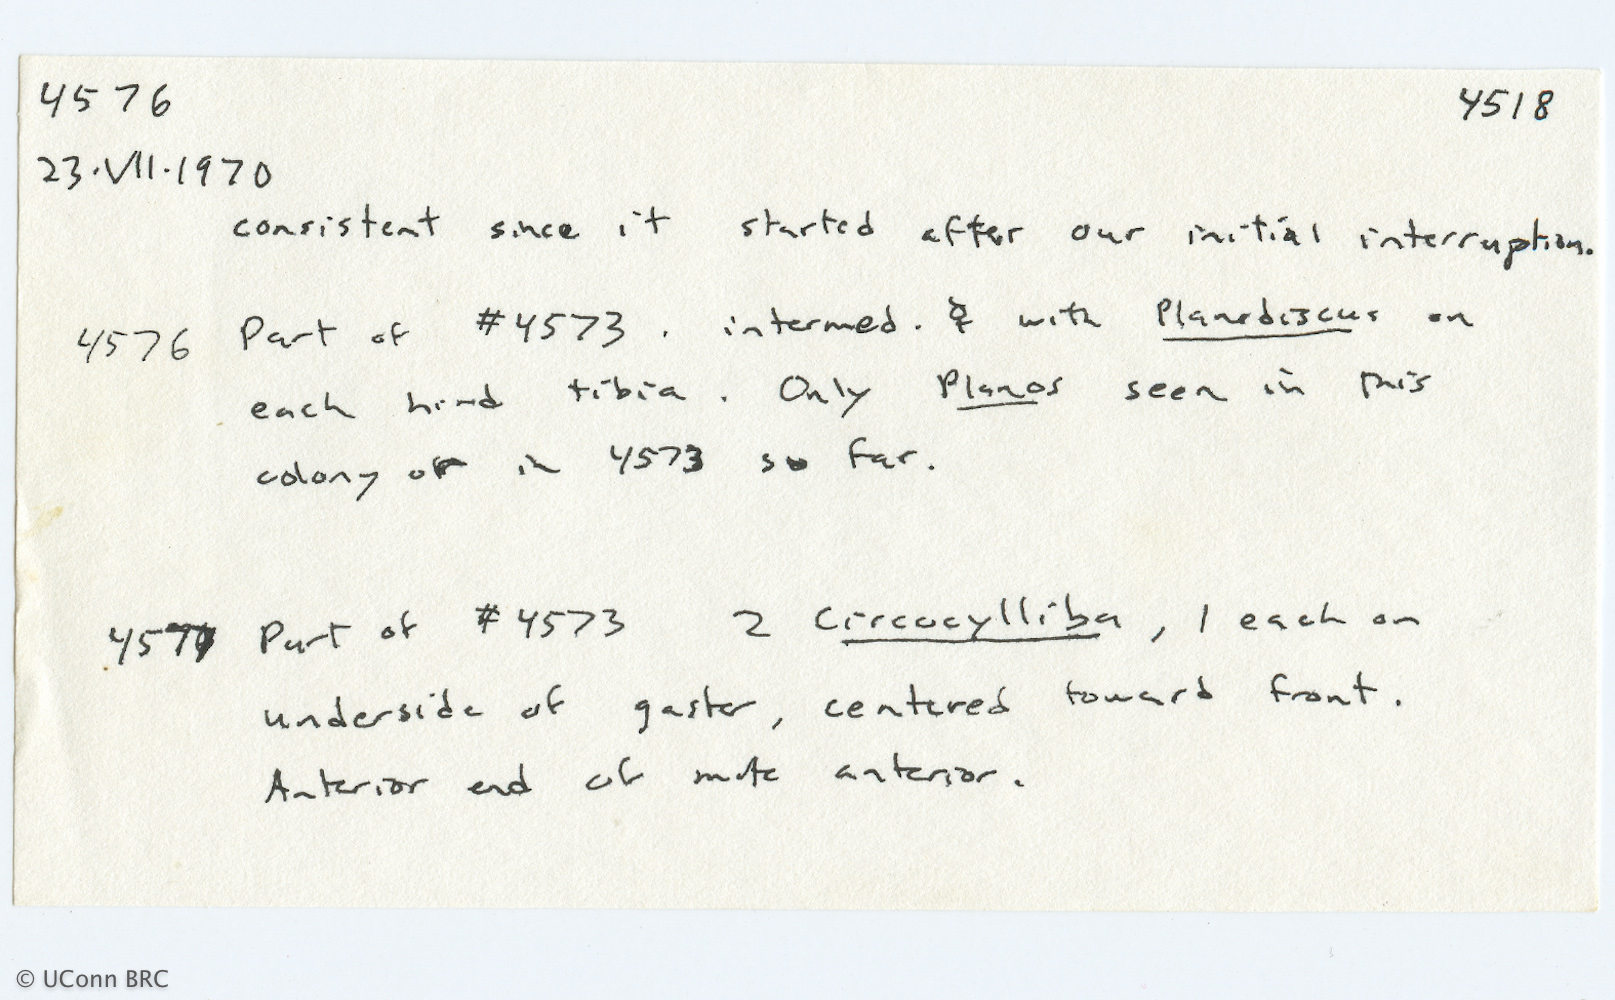 4576 4518
23·VII·1970
consistent since it started after our initial interruption.
4576 Part of #4573. intermed. ☿ with Planodiscus on
each hind tibia. Only Planos seen in this
colony or in 4573 so far.
4577 Part of #4573 2 Circocylliba, 1 each on
underside of gaster, centered toward front.
Anterior end of mite anterior.
© UConn BRC